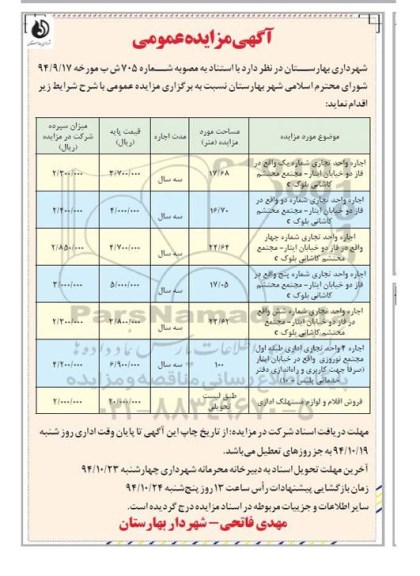 آگهی مزایده عمومی
شهرداری بهارستان در نظر دارد با استناد به مصوبه شماره ۷۰۵ ش ب مورخه ۹۴/۹/۱۷
شورای محترم اسلامی شهر بهارستان نسبت به برگزاری مزایده عمومی با شرح شرایط زیر
اقدام نماید:
موضوع مورد مزایده مساحت مورد مزایده (متر) مدت اجاره قیمت پایه (ریال) میزان سپرده شرکت در مزایده (ریال)
اجاره واحد تجاری شماره یک واقع در
فاز دو خیابان ایثار- مجتمع محتشم
کاشانی بلوک c
۱۷/۶۸ سه سال ۳/۷۰۰/۰۰۰ ۲/۳۰۰/۰۰۰
اجاره واحد تجاری شماره دو واقع در
فاز دو خیابان ایثار- مجتمع محتشم
کاشانی بلوک c
۱۶/۷۰ سه سال ۴/۰۰۰/۰۰۰ ۲/۴۰۰/۰۰۰
اجاره واحد تجاری شماره چهار
واقع در فاز دو خیابان ایثار- مجتمع
محتشم کاشانی بلوک c
۲۲/۶۴ سه سال ۴/۷۰۰/۰۰۰ ۲/۸۵۰/۰۰۰
اجاره واحد تجاری شماره پنج واقع در
فاز دو خیابان ایثار- مجتمع محتشم
کاشانی بلوک c
۱۷/۰۵ سه سال ۵/۰۰۰/۰۰۰ ۳/۰۰۰/۰۰۰
اجاره واحد تجاری شماره شش واقع
در فاز دو خیابان ایثار- مجتمع
محتشم کاشانی بلوک c
۲۳/۶۲ سه سال ۳/۸۰۰/۰۰۰ ۲/۳۰۰/۰۰۰
اجاره ۴ واحد تجاری اداری طبقه اول
مجتمع نوروزی واقع در خیابان ایثار
(صرفا جهت کاربری و راه‌اندازی دفتر
خدماتی پلیس + ۱۰)
۱۰۰ سه سال ۶/۹۰۰/۰۰۰ ۴/۲۰۰/۰۰۰
فروش اقلام و لوازم مستهلک اداری طبق لیست تحویلی ۲۰/۰۰۰/۰۰۰ ۲/۰۰۰/۰۰۰
ParsNamadData
۰۲۱-۸۸۳۴۹۶۷۰-۵
مهلت دریافت اسناد شرکت در مزایده: از تاریخ چاپ این آگهی تا پایان وقت اداری روز شنبه
۹۴/۱۰/۱۹ به جز روزهای تعطیل می‌باشد.
آخرین مهلت تحویل اسناد به دبیرخانه محرمانه شهرداری چهارشنبه ۹۴/۱۰/۲۳
زمان بازگشایی پیشنهادات رأس ساعت ۱۳ روز پنج‌شنبه ۹۴/۱۰/۲۴
سایر اطلاعات و جزییات مربوطه در اسناد مزایده درج گردیده است.
مهدی فاتحی - شهردار بهارستان